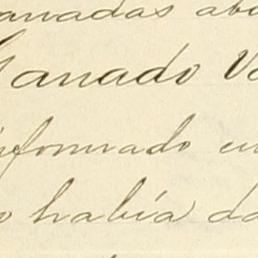 anadas ab
Ganado V
nformado en
o había da